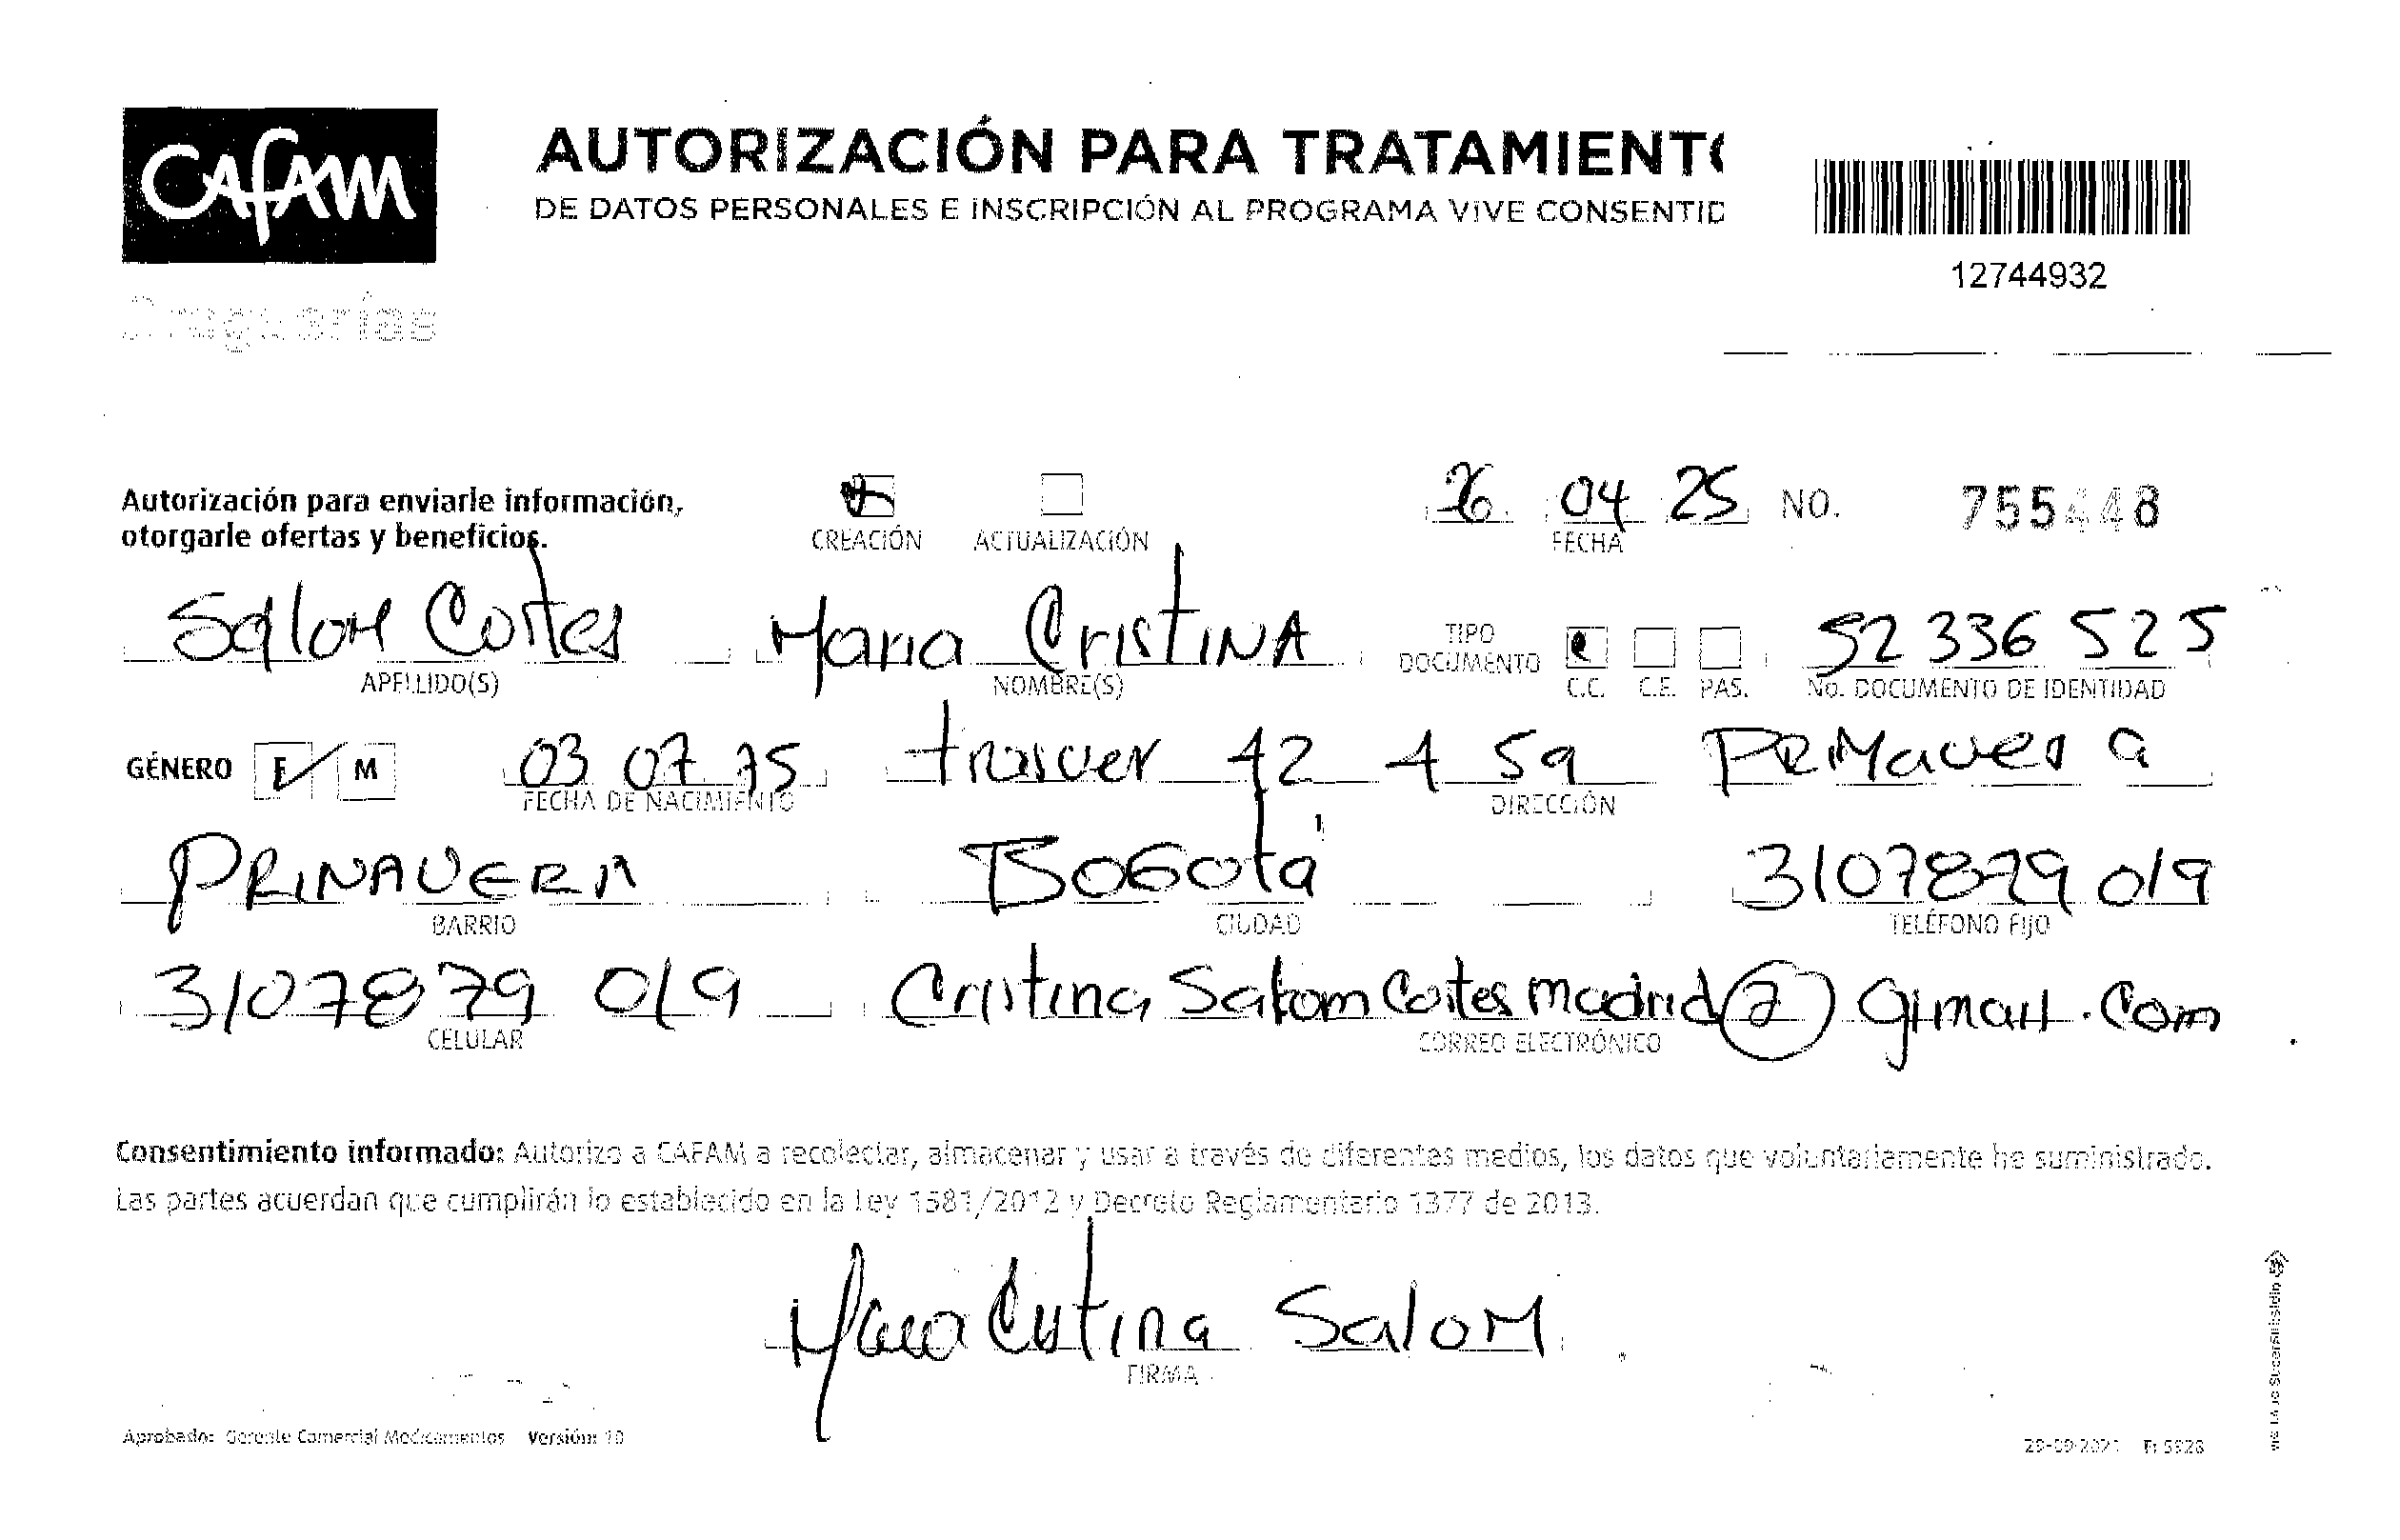 CAFAM
Droguerías
AUTORIZACIÓN PARA TRATAMIENTO
DE DATOS PERSONALES E INSCRIPCIÓN AL PROGRAMA VIVE CONSENTID
12744932
Autorización para enviarle información,
otorgarle ofertas y beneficios.
CREACIÓN ACTUALIZACIÓN
26 04 25 NO. 755448
FECHA
Salom Cortes Maria CristiNA TIPO DOCUMENTO 52 336 525
APELLIDO(S) NOMBRE(S) C.C. C.E. PAS. No. DOCUMENTO DE IDENTIDAD
GÉNERO F M 03 07 75 trasver 42 4 59 PRiMavera
FECHA DE NACIMIENTO DIRECCIÓN
PRINAVERA BOGotá 3107879019
BARRIO CIUDAD TELÉFONO FIJO
3107879 019 Cristina Salom Cortes madrid @ gimail.com
CELULAR CORREO ELECTRÓNICO
Consentimiento informado: Autorizo a CAFAM a recolectar, almacenar y usar a través de diferentes medios, los datos que voluntariamente he suministrado.
Las partes acuerdan que cumplirán lo establecido en la Ley 1581/2012 y Decreto Reglamentario 1377 de 2013.
Maria Cristina Salom
FIRMA
Aprobado: Gerente Comercial Medicamentos Versión: 10
29-09-2021 F: 5928